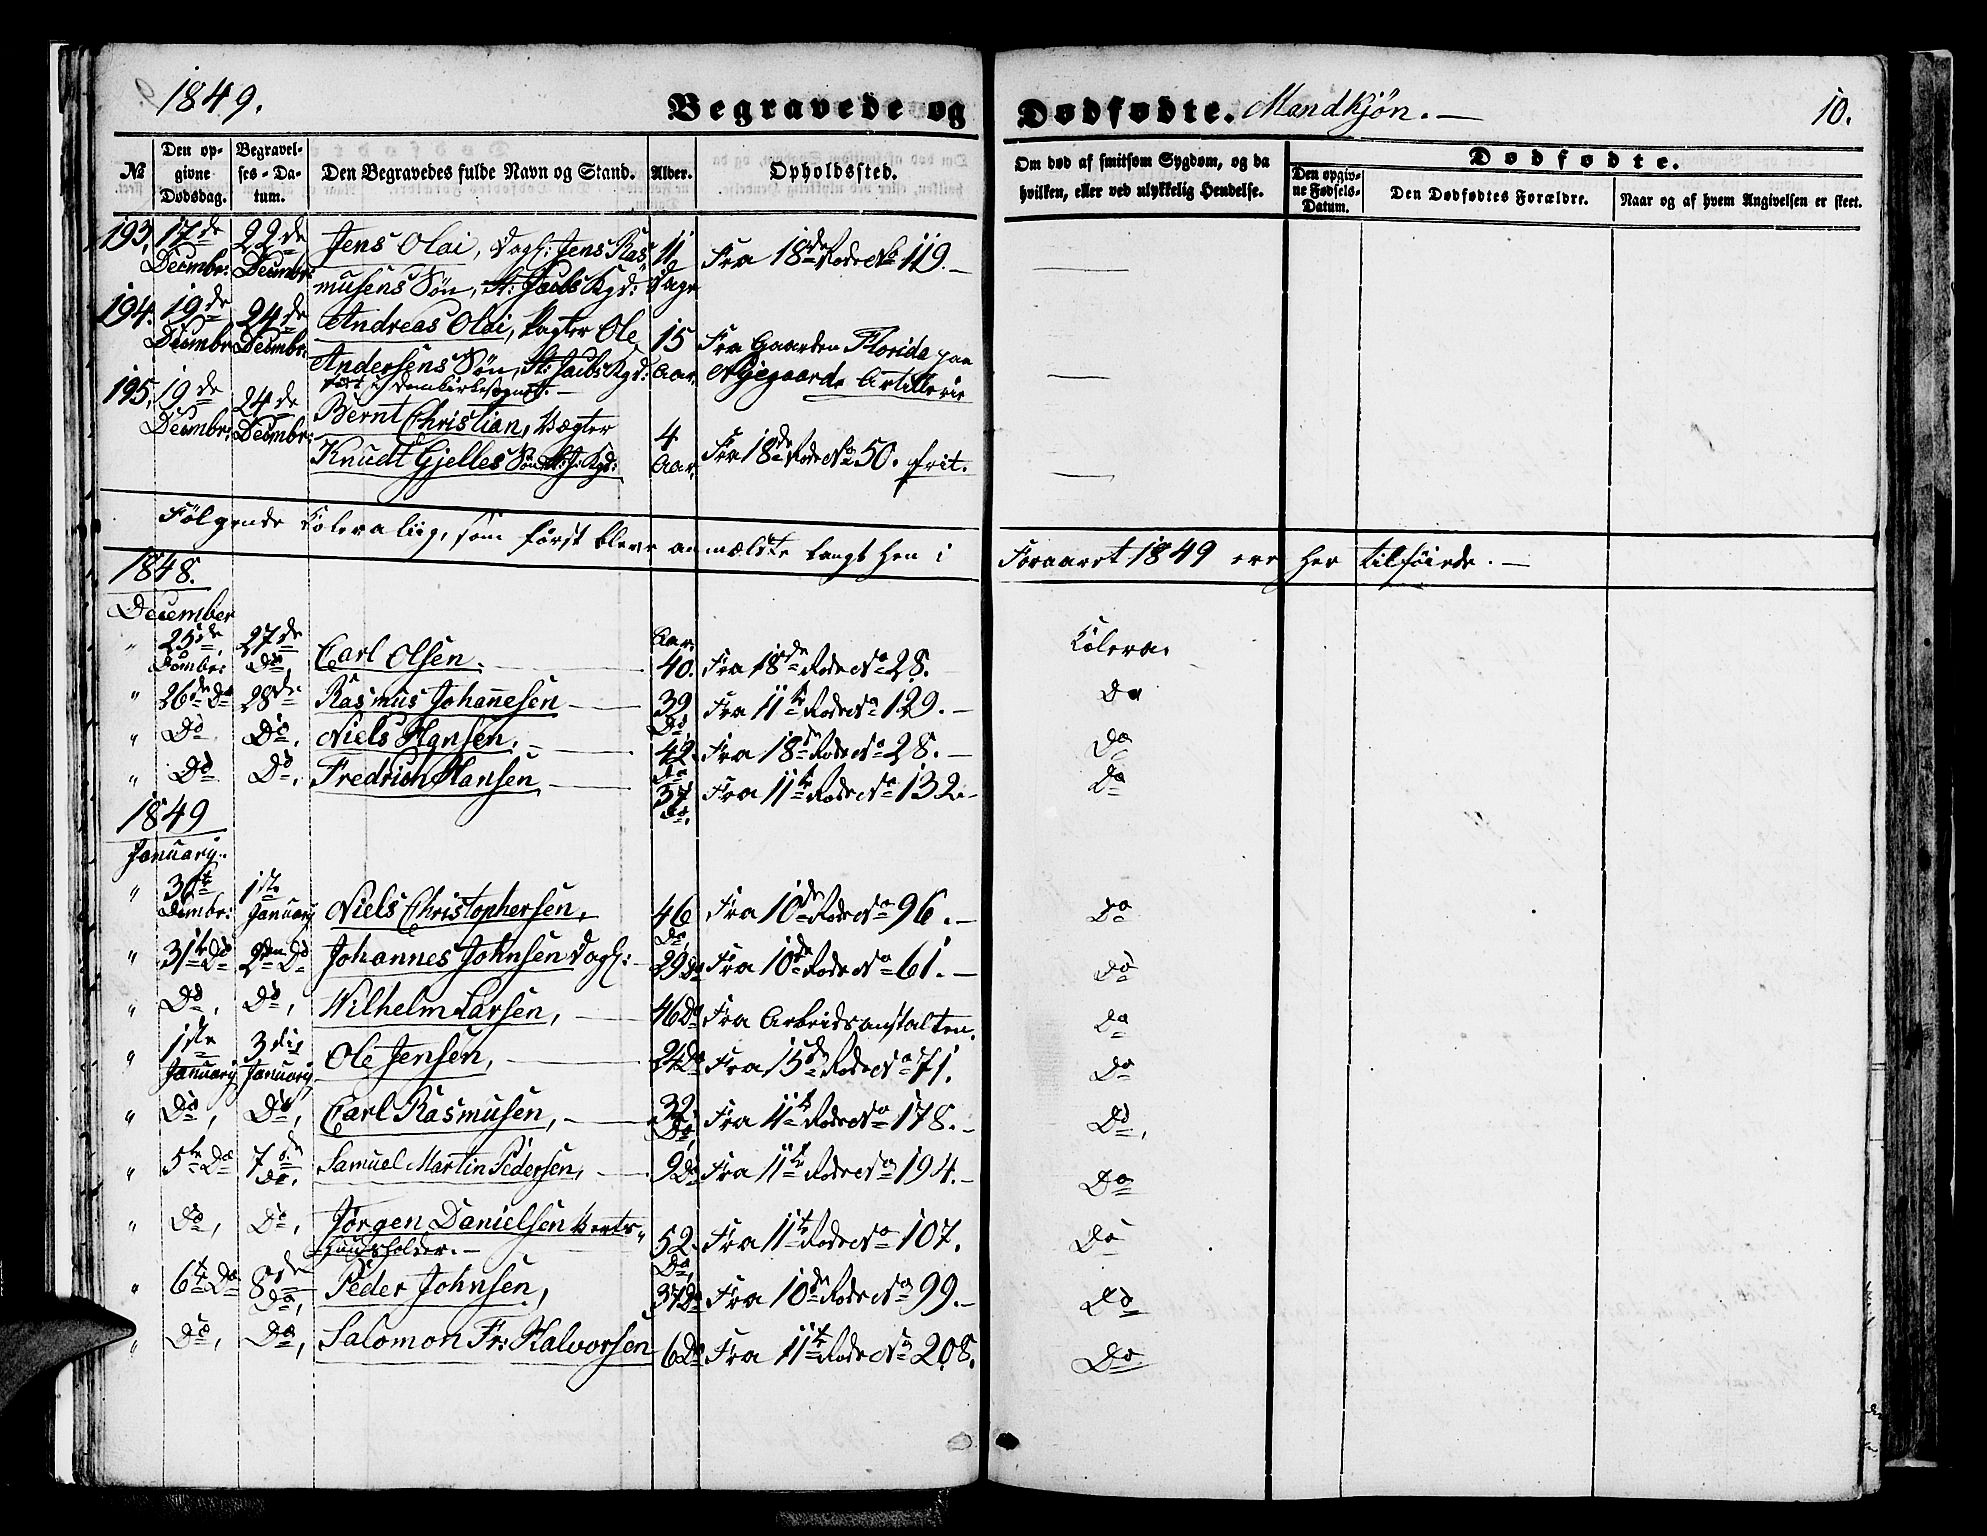 1849. Begravede og Dødfødte. Mandkjøn. — 10.
№ Den opgivne Dødsdag. Begravelses-Datum. Den Begravedes fulde Navn og Stand. Alder. Opholdssted. Om død af smitsom Sygdom, og da hvilken, eller ved ulykkelig Hendelse. Dødfødte. Den opgivne Fødsels-Datum. Den Dødfødtes Forældre. Naar og af hvem Angivelsen er skeet.
193, 17de 22de Jens Olai, Dagl: Jens Ras- 11
Decmbr: Decmbr: musens Søn, St: Jacobs Kgd: Dage Fra 18de Rode No 119. —
194. 19de 24de Andreas Olai, Pagter Ole 15 Fra Gaarden Florida paa
Decmbr Decmbr. Andersens Søn, St: Jacobs Kgd: Aar. Nygaards Artillerie
195, 19de 24de Domkirkesognet. —
Decmbr: Decmbr: Bernt Christian, Vægter 4
Knudt Gjelles Søn St: J: Kgd: Aar. Fra 18de Rode No 50. frit.
Følgende Koleraliig, som først bleve anmældte langt hen i Foraaret 1849 ere her tilføiede. —
1848.
December
" 25de 27de Aar. Kolera.
Decmbr: Do, Carl Olsen. — 40. Fra 18de Rode No 28.
" 26de Do 28de Rasmus Johannesen — 39 Do Fra 11te Rode No 129. — Do
" Do Do. Niels Hansen. — 42. Do Fra 18de Rode No 28. — Do
" Do Do. Fredrich Hansen — 37 Do. Fra 11te Rode No 132. — Do
1849
January.
" 30te 1ste
Decmbr: January Niels Christophersen, 46 Do Fra 10de Rode No 96. — Do
" 31te Do 2den Do Johannes Johnsen Dagl: 29 Do Fra 10de Rode No 61. — Do
" Do, Do, Wilhelm Larsen, — 46 Do Fra Arbeidsanstalten. Do
" 1ste 3die
January January Ole Jensen, — 24 Do Fra 15de Rode No 71. Do
" Do, Do, Carl Rasmusen, — 32 Do, Fra 11te Rode No 178. — Do,
" 5te Do 7de Do. Samuel Martin Pedersen, — 9 Do Fra 11te Rode No 194. — Do
" Do, Do, Jørgen Danielsen Verts-
huusholder. — 52. Do, Fra 11te Rode No 107. Do
" 6te Do 8de Do, Peder Johnsen, 37 Do Fra 10de Rode No 99. — Do
" Do, Do, Salomon Fr: Halvorsen 6 Do Fra 11te Rode No 208. Do.